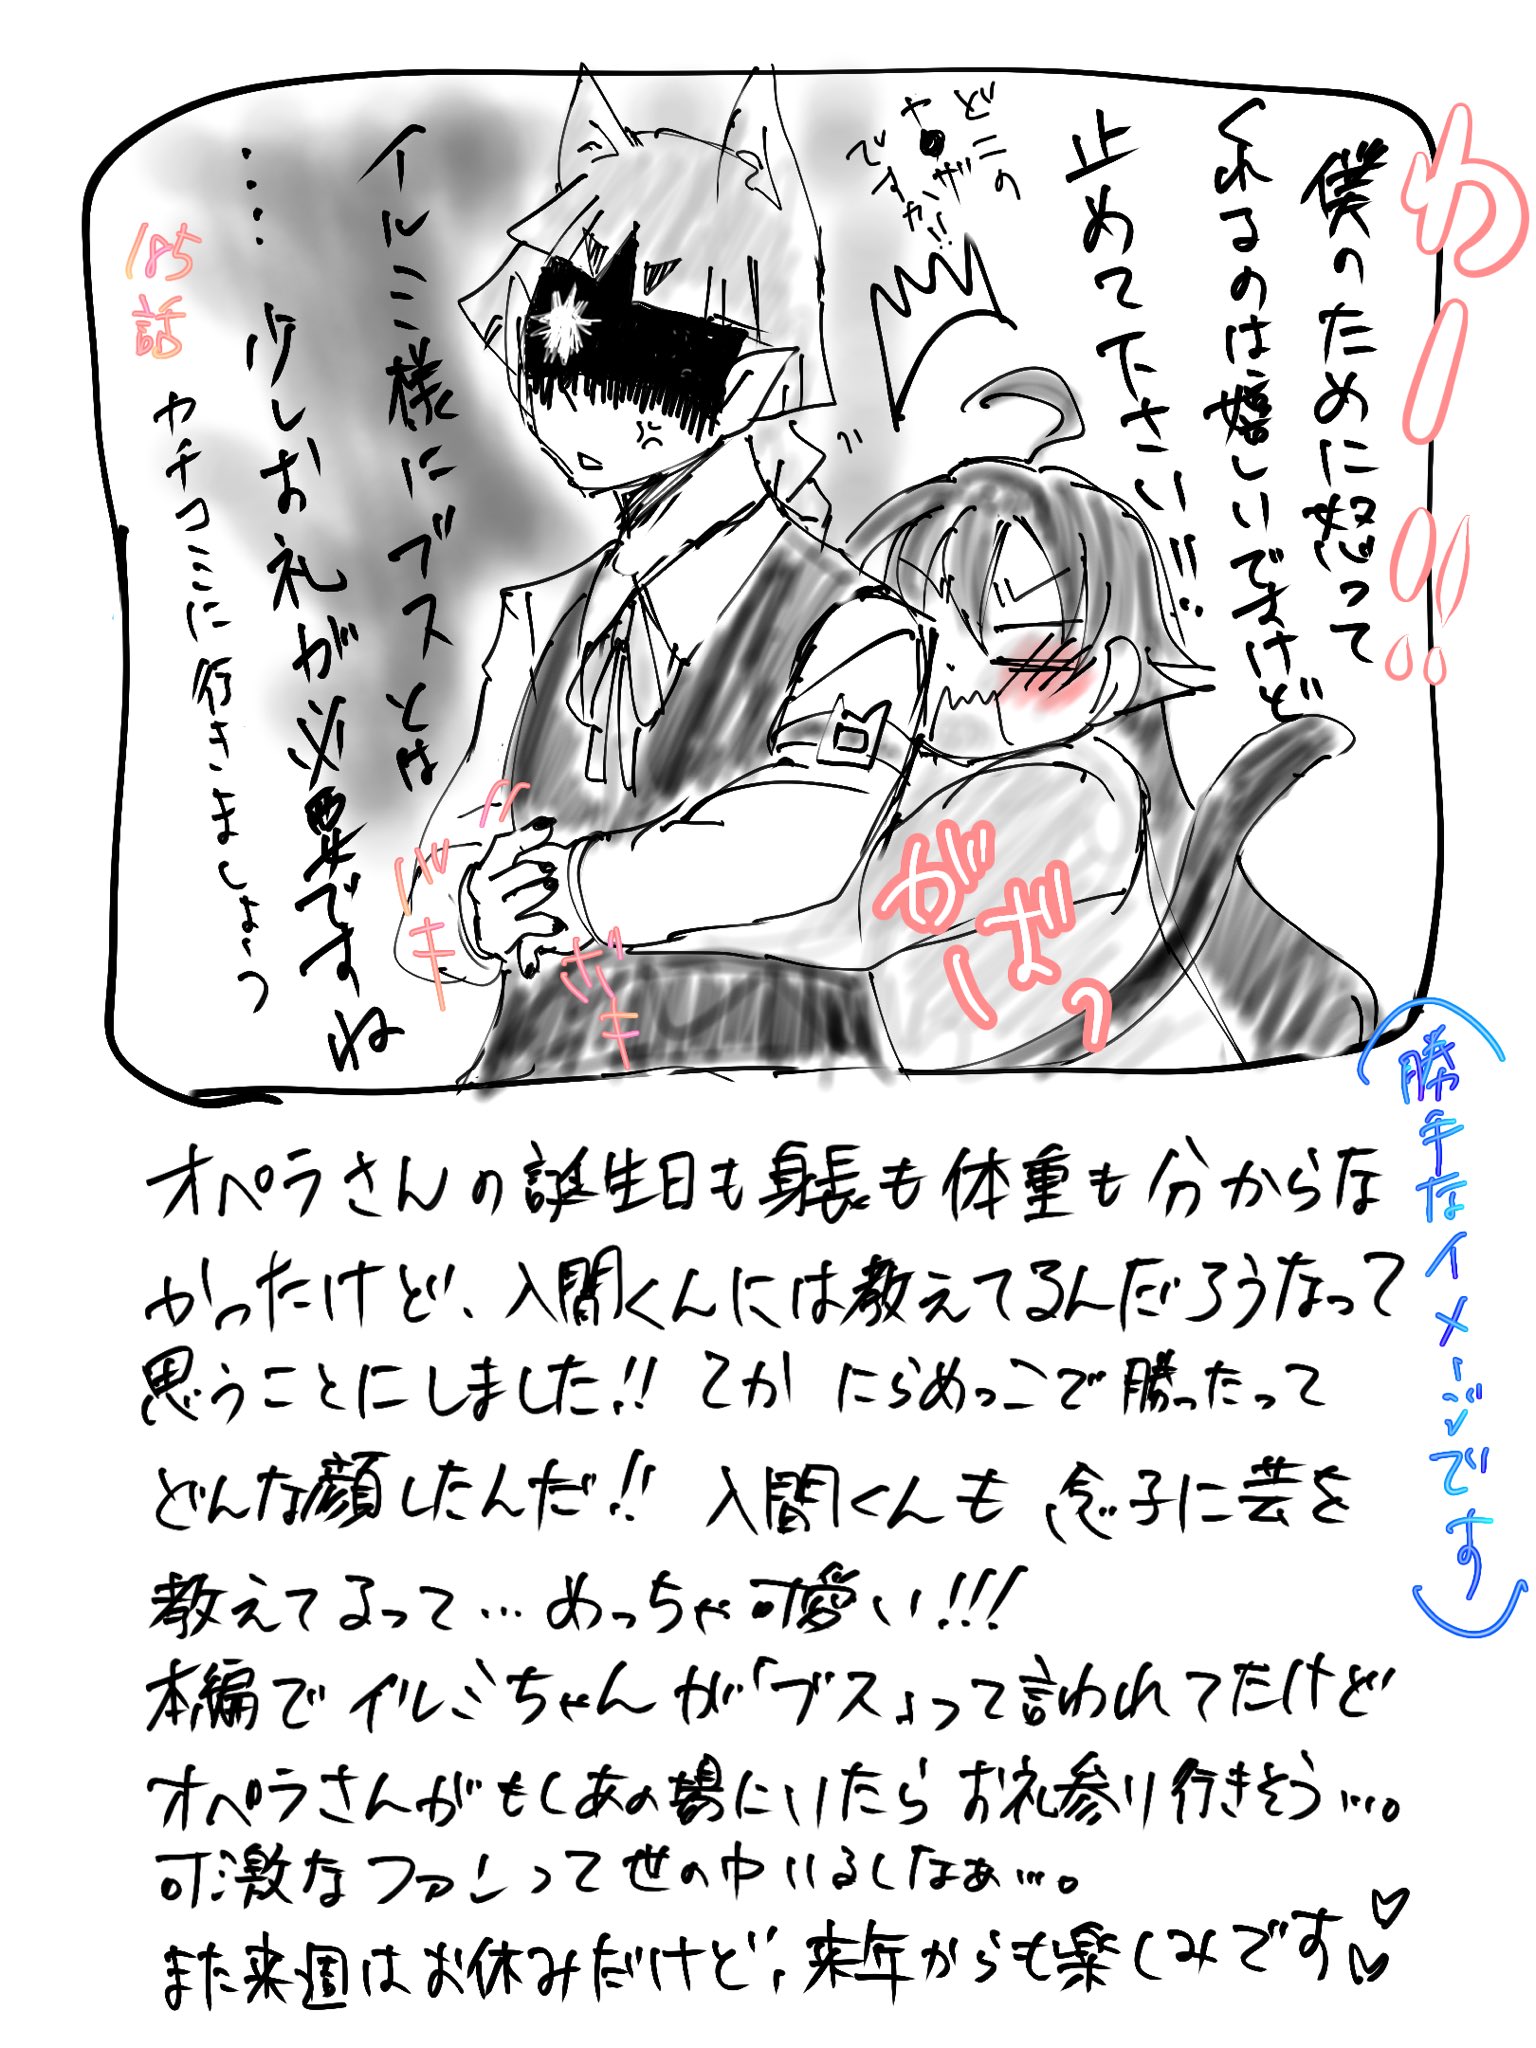 わー!!
僕のために怒って
くれるのは嬉しいですけど
止めて下さい!!
どこの
ヤ●ザ
ですか!!
イルミ様にブスとは
‥‥少しお礼が必要ですね
185話
カチコミに行きましょう
バキ
ボキ
がばっ
(勝手なイメージです)
オペラさんの誕生日も身長も体重も分からな
かったけど、入間くんには教えてるんだろうなって
思うことにしました!! てか にらめっこで勝ったって
どんな顔したんだ!! 入間くんも 息子に芸を
教えてるって…めっちゃ可愛い!!!
本編でイルミちゃんが「ブス」って言われてたけど
オペラさんがもしあの場にいたらお礼参り行きそう…。
可激なファンって世の中いるしなぁ…。
また来週はお休みだけど、来年からも楽しみです♡♡